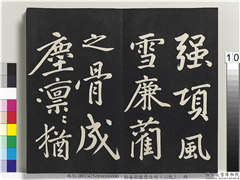 强項風
雪廉藺
之骨成
塵凛〻猶
1.0